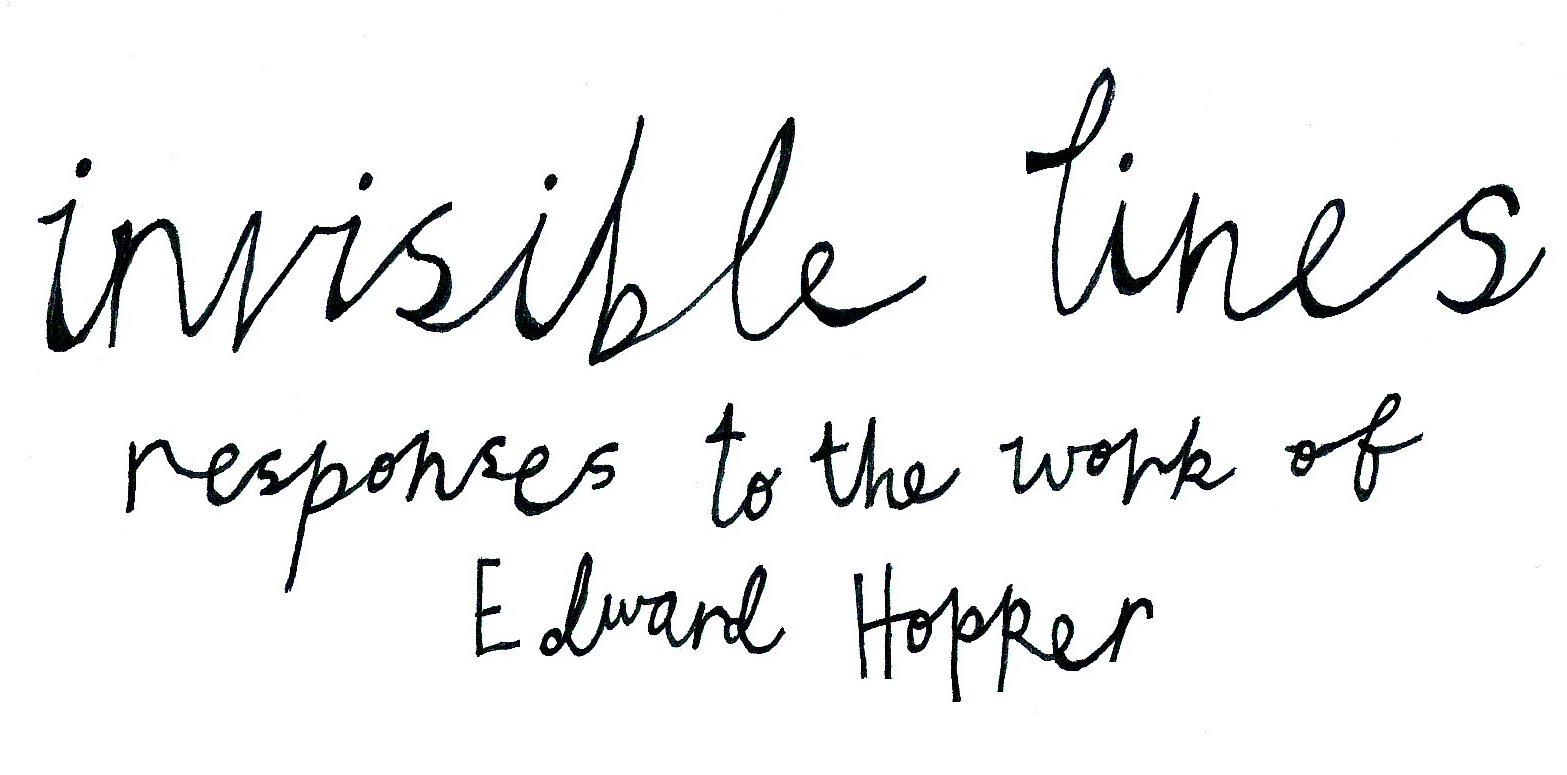 invisible lines
responses to the work of
Edward Hopper